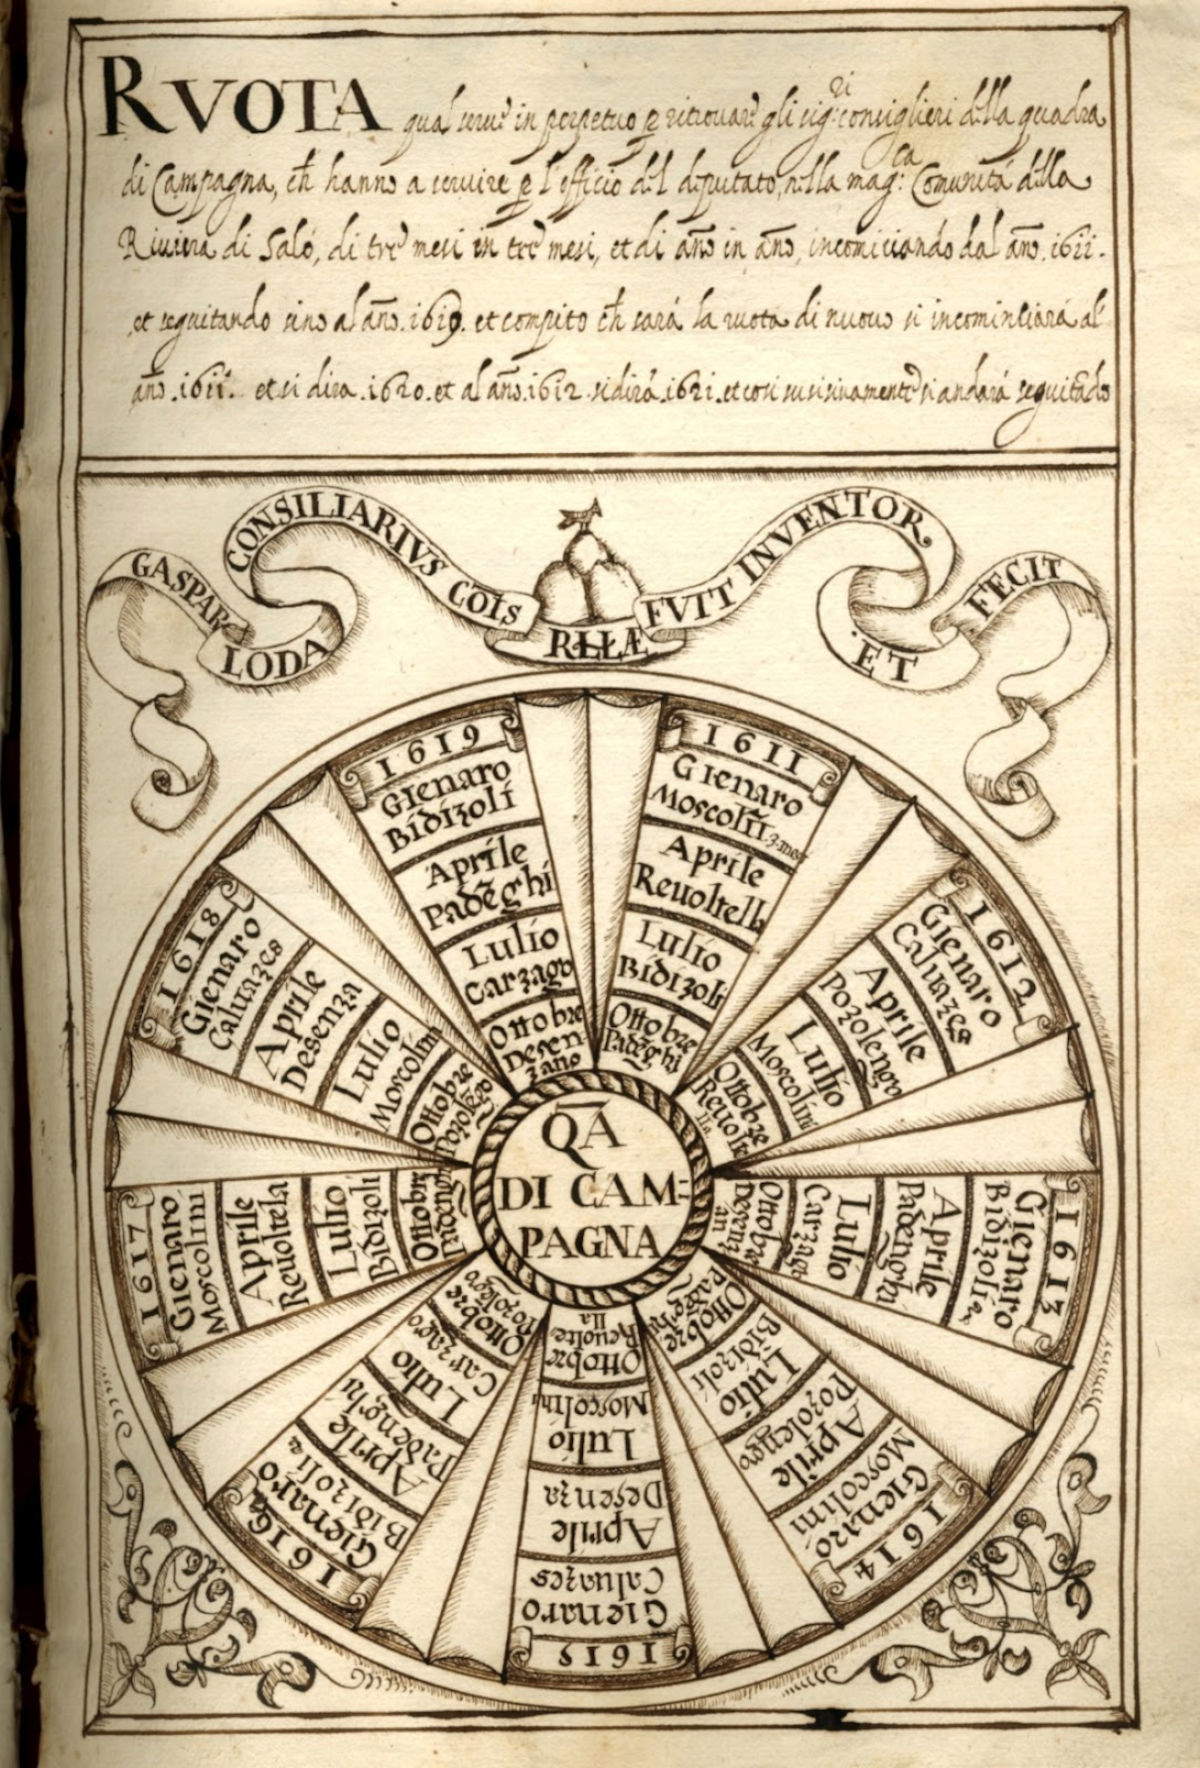 RVOTA qual serue in perpetuo p ritrouare gli sig:ri consiglieri della quadra
di Campagna, ch hanno a seruire p l'officio del deputato, nella mag:ca Comunità della
Riuiera di Salò, di tre mesi in tre mesi, et di año in año, incominciando dal año .1611.
et seguitando sino al año .1619. et compito ch sarà la ruota di nuouo si incominciarà al
año .1611. et si dira .1620. et al año .1612 si dirà .1621. et cosi susisiuamente si andarà seguitado
GASPAR LODA CONSILIARIVS COIS RLLÆ FVIT INVENTOR ET FECIT
1611
Gienaro
Moscolini 3. mesi
Aprile
Reuoltella
Lulio
Bidizoli
Ottobre
Padeghi
1612
Gienaro
Caluazes
Aprile
Pozolengo
Lulio
Moscolini
Ottobre
Reuolte
lla
1613
Gienaro
Bidizoli 2
Aprile
Padenghi
Lulio
Carzago
Ottobre
Desenz
an
1614
Gienaro
Moscolini
Aprile
Pozolengo
Lulio
Bidizoli
Ottobre
Padeghi
1615
Gienaro
Caluazes
Aprile
Desenza
Lulio
Moscolini
Ottobre
Reuolte
lla
1616
Gienaro
Bidizoli 2
Aprile
Padenghi
Lulio
Carzago
Ottobre
Pozolego
1617
Gienaro
Moscolini
Aprile
Reuoltela
Lulio
Bidizoli
Ottobre
Padengh
1618
Gienaro
Caluazes
Aprile
Desenza
Lulio
Moscolini
Ottobre
Pozolego
1619
Gienaro
Bidizoli
Aprile
Padeghi
Lulio
Carzago
Ottobre
Desen
zano
QA
DI CAM=
PAGNA